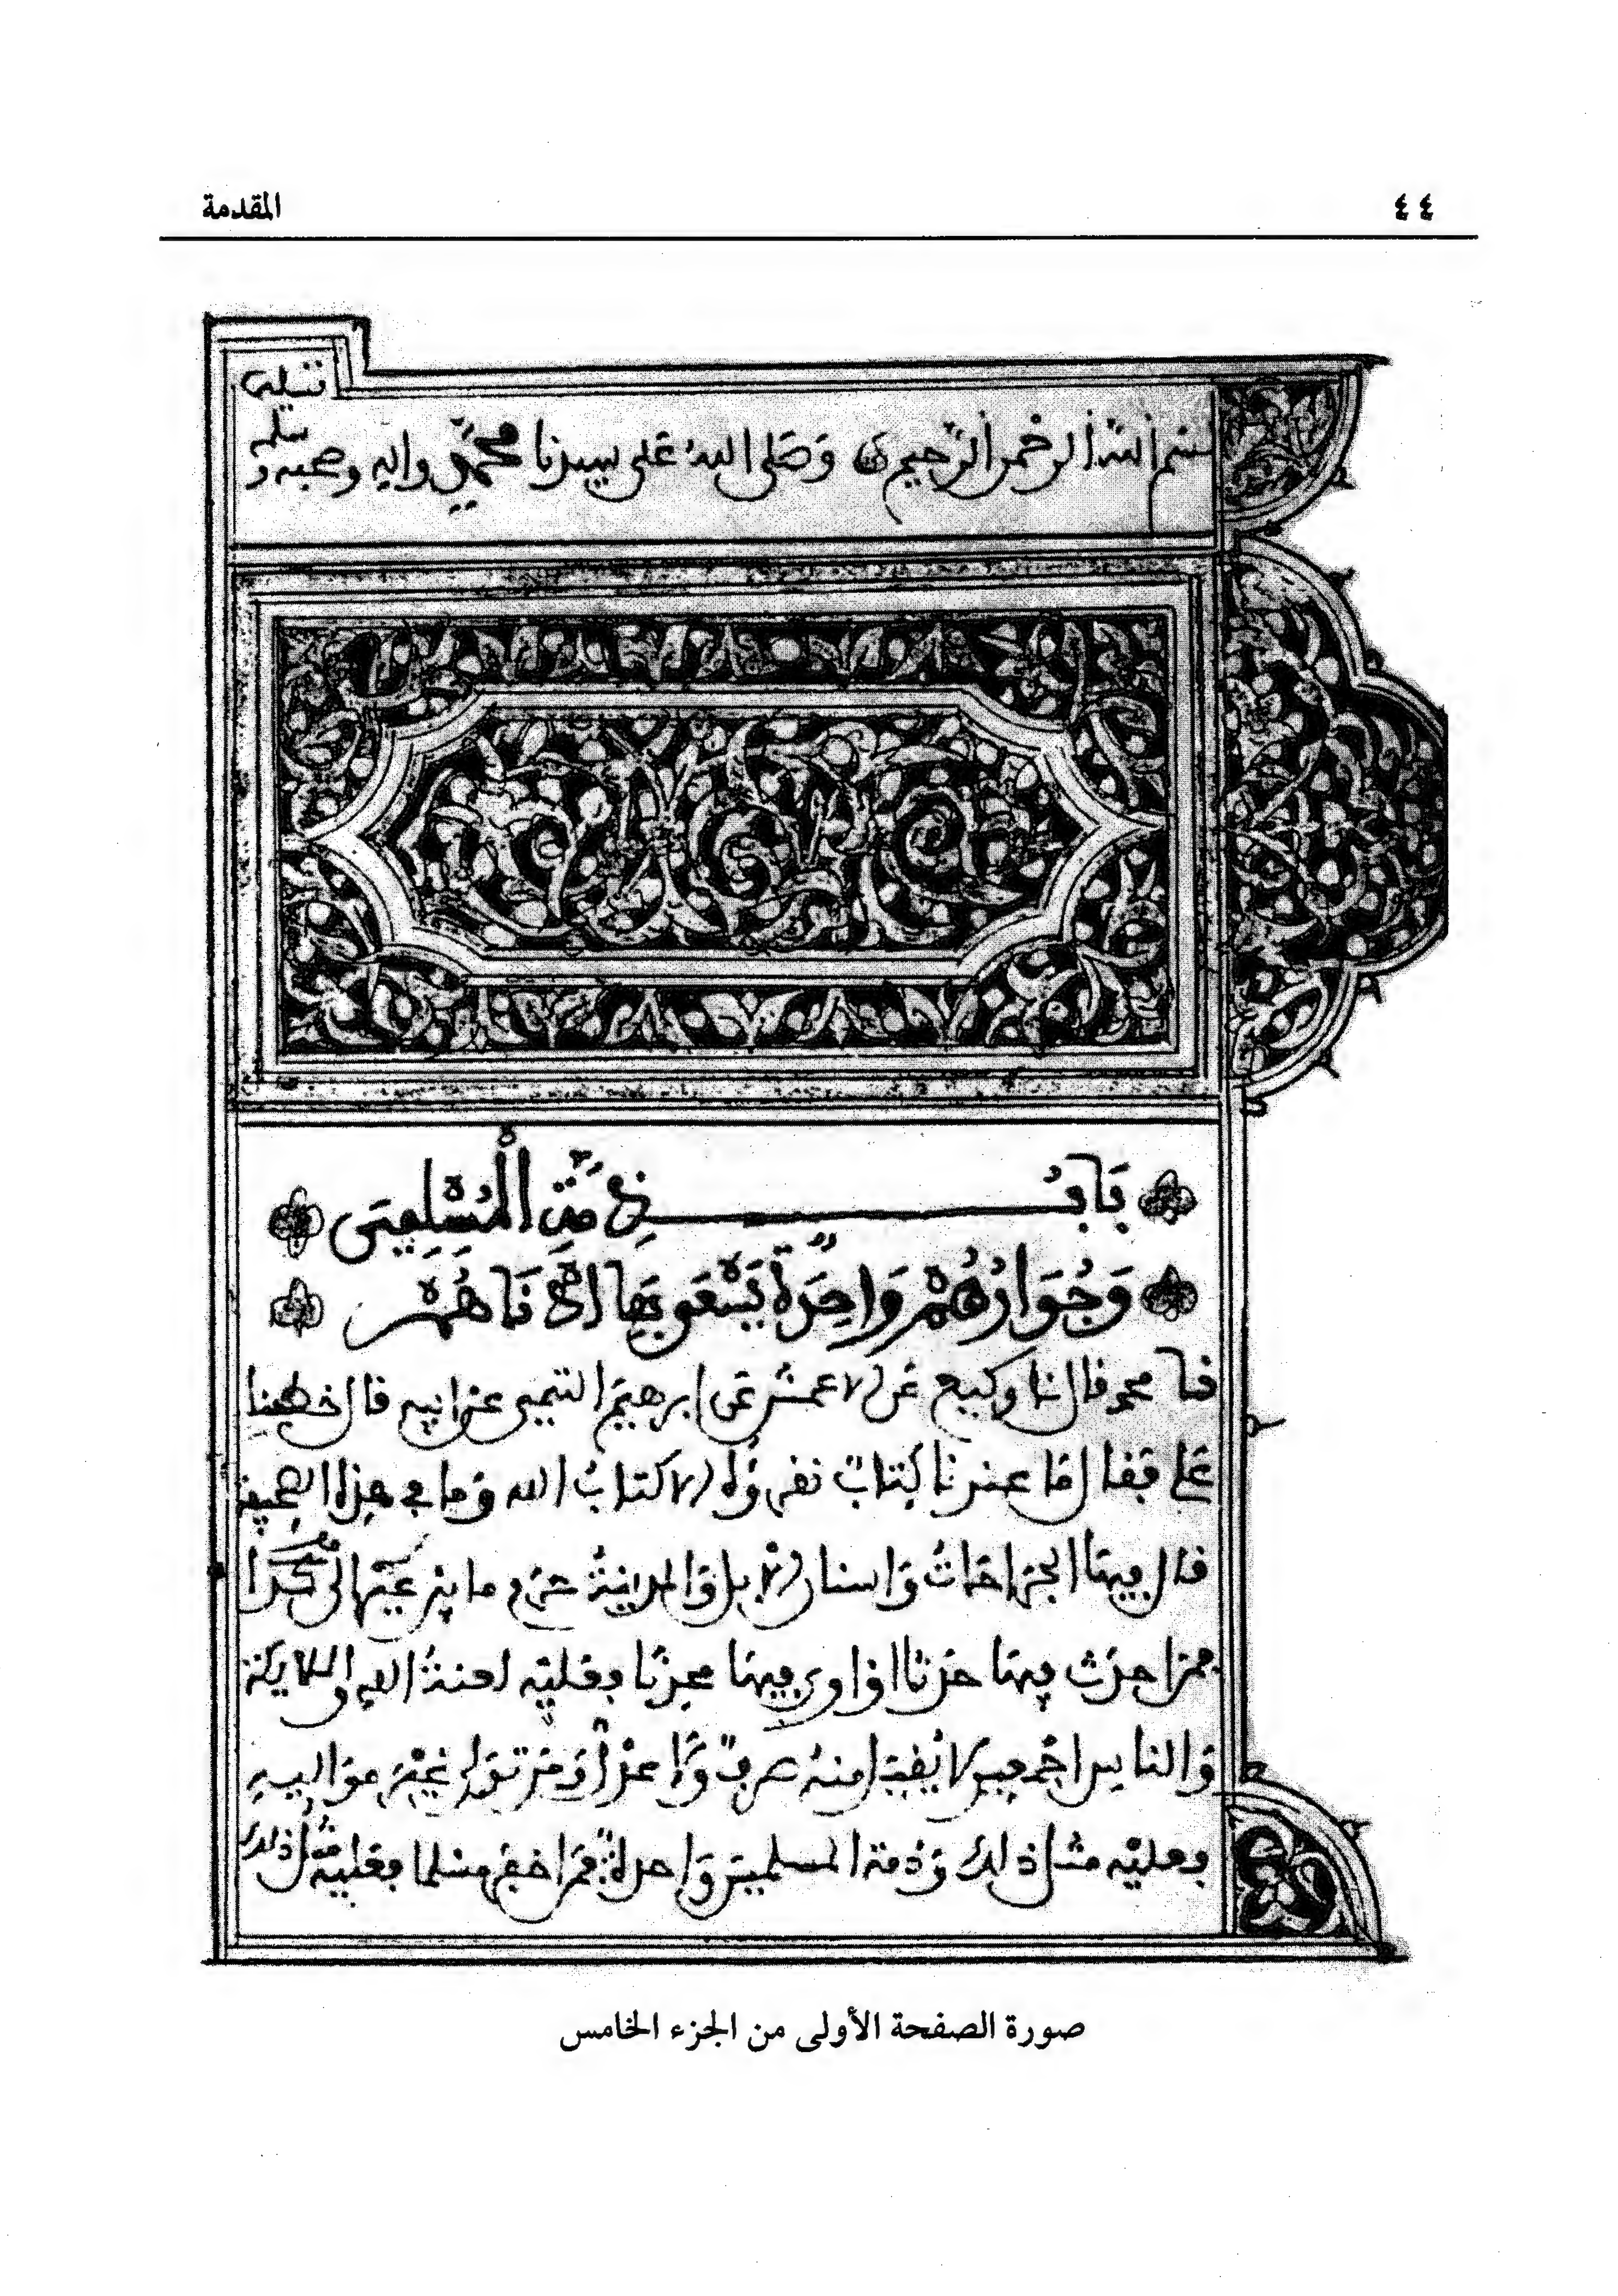 ٤٤
المقدمة
بسم الله الرحمن الرحيم وصلى الله على سيدنا محمد واله وصحبه وسلم
بَابُ ذِمَّةِ الْمُسْلِمِينَ
وَجُوَارُهُمْ وَاحِدَةٌ يَسْعَى بِهَا أَدْنَاهُمْ
نا محمد قال انا وكيع عن الاعمش عن ابرهيم التيمي عن ابيه قال خطبنا
علي فقال ما عندنا كتاب نقرؤه الا كتاب الله وما في هذه الصحيفة
قال فيها الجراحات واسنان الابل والمدينة حرم ما بين عير الى كذا
فمن احدث فيها حدثا او اوى فيها محدثا فعليه لعنة الله والملايكة
والناس اجمعين لا يقبل منه صرف ولا عدل ومن تولى غير مواليه
فعليه مثل ذلك وذمة المسلمين واحدة فمن اخفر مسلما فعليه مثل ذلك
صورة الصفحة الأولى من الجزء الخامس